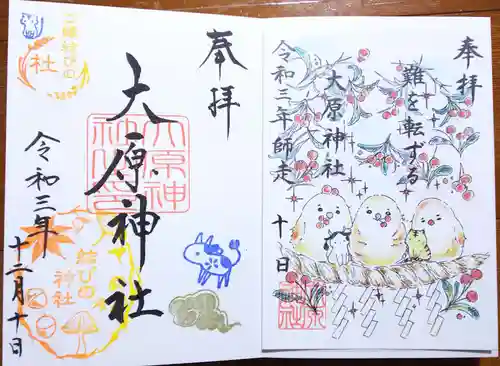 奉拝
難を転ずる
大原神社
令和三年師走
十日
奉拝
大原神社
令和三年
十二月十日
結びの
社
結びの
神社